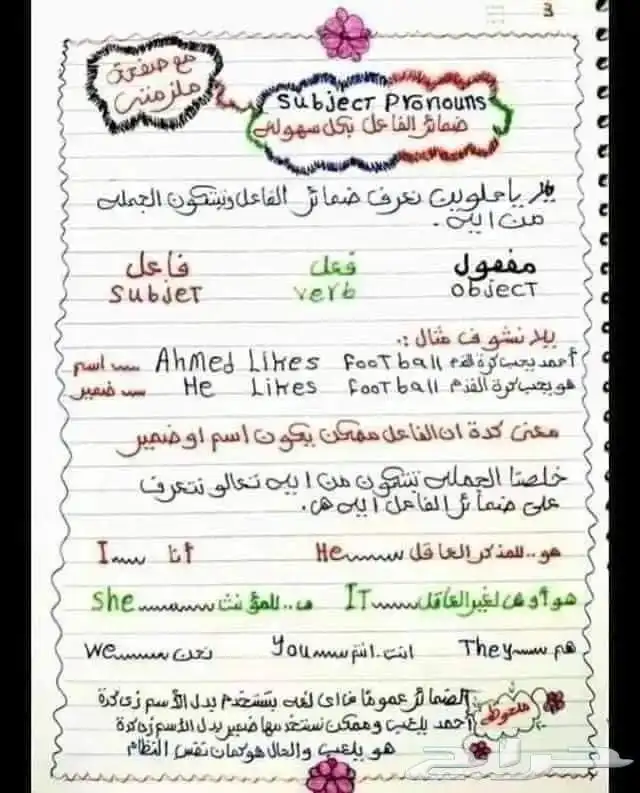 3
مع صفحة
ملزمتى
Subject Pronouns
ضمائر الفاعل بكل سهوله
يلا ياحلوين نعرف ضمائر الفاعل وبتتكون الجمله
من ايه .
فاعل فعل مفعول
Subjet verb object
يلا نشوف مثال :.
اسم Ahmed Likes football أحمد يحب كرة القدم
ضمير He Likes football هو يحب كرة القدم
معنى كدة ان الفاعل ممكن يكون اسم او ضمير
خلصنا الجمله بتتكون من ايه تعالو نتعرف
على ضمائر الفاعل ايه هى.
I أنا He هو..للمذكر العاقل
She هى..للمؤنث IT هو أو هى لغير العاقل
We نحن You انت.انتم They هم
ملحوظه
الضمائر عمومًا فى اى لغه بتستخدم بدل الأسم زى كدة
أحمد يلعب وممكن نستخدمها ضمير بدل الأسم زى كدة
هو يلعب والحال هو كمان نفس النظام
حراج